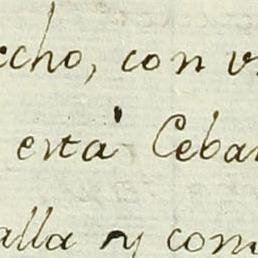 echo, con v
está Ceba
alla y com